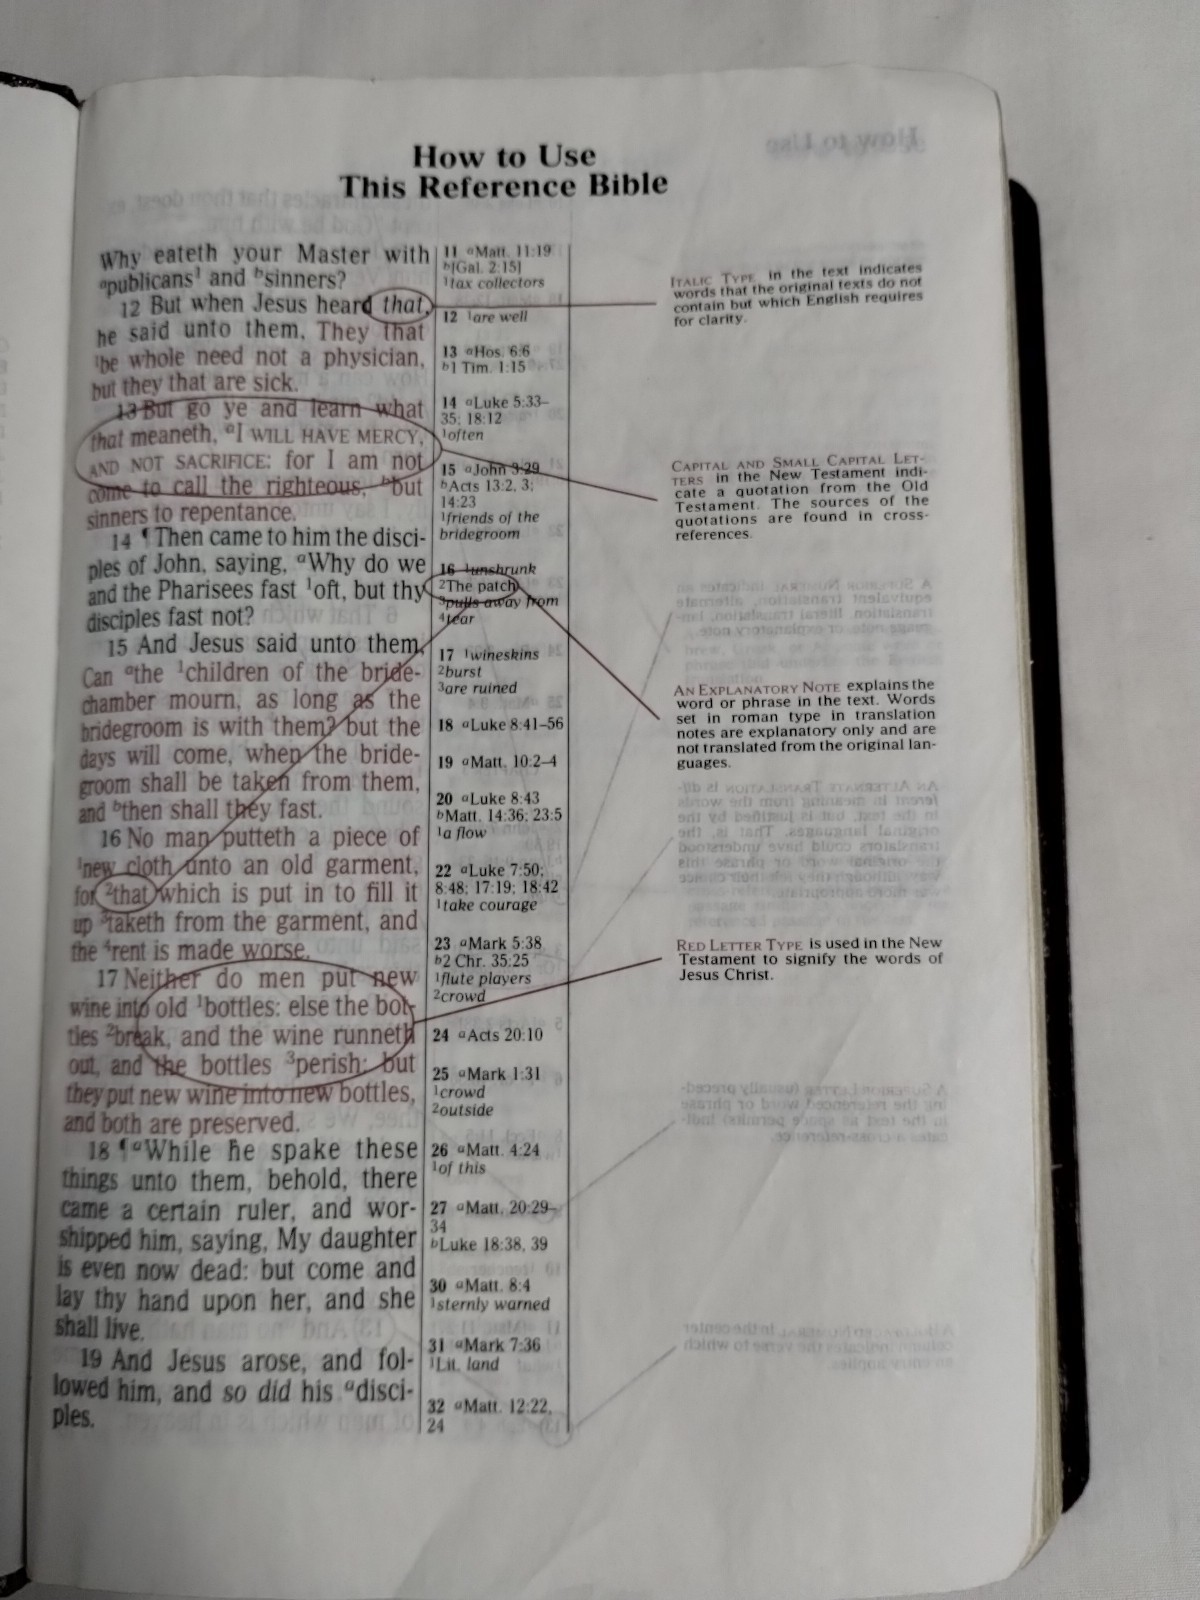 How to Use
This Reference Bible
Why eateth your Master with
ᵃpublicans¹ and ᵇsinners?
12 But when Jesus heard that,
he said unto them, They that
¹be whole need not a physician,
but they that are sick.
13 But go ye and learn what
that meaneth, ᵃI WILL HAVE MERCY,
AND NOT SACRIFICE: for I am not
come to call the righteous, ᵇbut
sinners to repentance.
14 ¶ Then came to him the disci-
ples of John, saying, ᵃWhy do we
and the Pharisees fast ¹oft, but thy
disciples fast not?
15 And Jesus said unto them,
Can ᵃthe ¹children of the bride-
chamber mourn, as long as the
bridegroom is with them? but the
days will come, when the bride-
groom shall be taken from them,
and ᵇthen shall they fast.
16 No man putteth a piece of
¹new cloth unto an old garment,
for ²that which is put in to fill it
up ³taketh from the garment, and
the ⁴rent is made worse.
17 Neither do men put new
wine into old ¹bottles: else the bot-
tles ²break, and the wine runneth
out, and the bottles ³perish: but
they put new wine into new bottles,
and both are preserved.
18 ¶ᵃWhile he spake these
things unto them, behold, there
came a certain ruler, and wor-
shipped him, saying, My daughter
is even now dead: but come and
lay thy hand upon her, and she
shall live.
19 And Jesus arose, and fol-
lowed him, and so did his ᵃdisci-
ples.
11 ᵃMatt. 11:19
ᵇ[Gal. 2:15]
¹tax collectors
12 ¹are well
13 ᵃHos. 6:6
ᵇ1 Tim. 1:15
14 ᵃLuke 5:33–
35; 18:12
¹often
15 ᵃJohn 3:29
ᵇActs 13:2, 3;
14:23
¹friends of the
bridegroom
16 ¹unshrunk
²The patch
³pulls away from
⁴tear
17 ¹wineskins
²burst
³are ruined
18 ᵃLuke 8:41–56
19 ᵃMatt. 10:2–4
20 ᵃLuke 8:43
ᵇMatt. 14:36; 23:5
¹a flow
22 ᵃLuke 7:50;
8:48; 17:19; 18:42
¹take courage
23 ᵃMark 5:38
ᵇ2 Chr. 35:25
¹flute players
²crowd
24 ᵃActs 20:10
25 ᵃMark 1:31
¹crowd
²outside
26 ᵃMatt. 4:24
¹of this
27 ᵃMatt. 20:29–
34
ᵇLuke 18:38, 39
30 ᵃMatt. 8:4
¹sternly warned
31 ᵃMark 7:36
¹Lit. land
32 ᵃMatt. 12:22,
24
ITALIC TYPE in the text indicates
words that the original texts do not
contain but which English requires
for clarity.
CAPITAL AND SMALL CAPITAL LET-
TERS in the New Testament indi-
cate a quotation from the Old
Testament. The sources of the
quotations are found in cross-
references.
AN EXPLANATORY NOTE explains the
word or phrase in the text. Words
set in roman type in translation
notes are explanatory only and are
not translated from the original lan-
guages.
RED LETTER TYPE is used in the New
Testament to signify the words of
Jesus Christ.